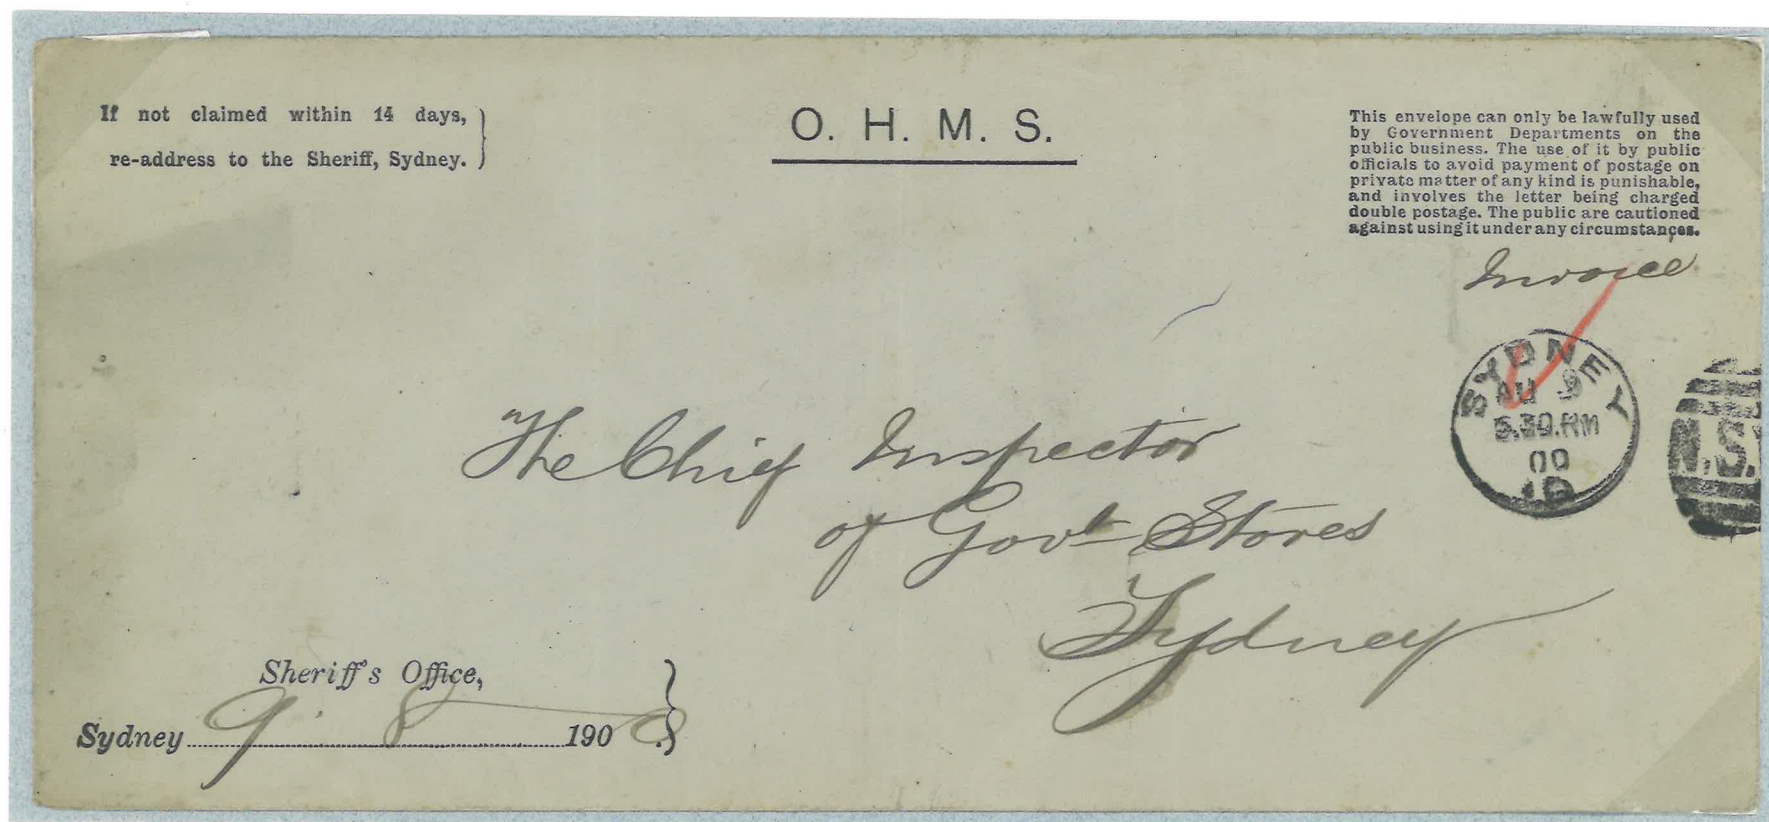 If not claimed within 14 days,
re-address to the Sheriff, Sydney.
O. H. M. S.
This envelope can only be lawfully used
by Government Departments on the
public business. The use of it by public
officials to avoid payment of postage on
private matter of any kind is punishable,
and involves the letter being charged
double postage. The public are cautioned
against using it under any circumstances.
Invoice
SYDNEY
AU 9
5.30.PM
00
10
N.S.
The Chief Inspector
of Govt Stores
Sydney
Sheriff's Office,
Sydney 9. 8 1900